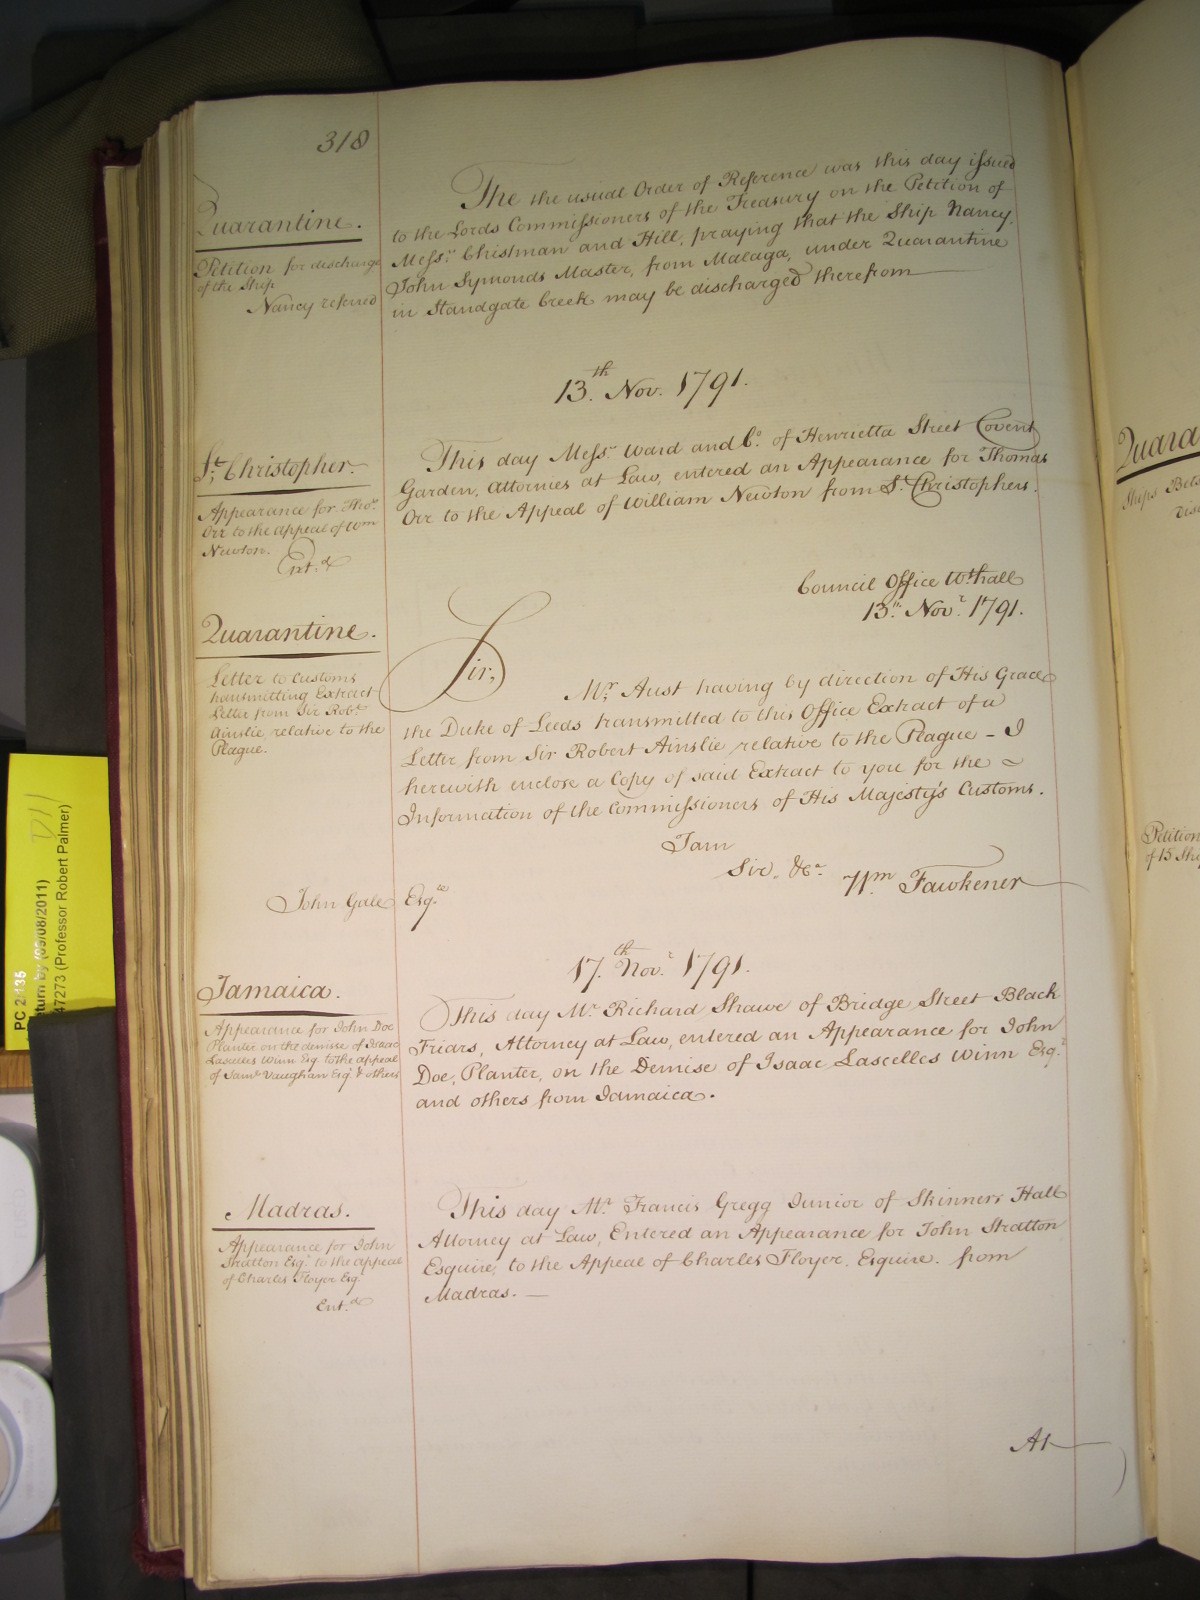 318
Quarantine.
Petition for discharge
of the Ship
Nancy referred
The the usual Order of Reference was this day issued
to the Lords Commissioners of the Treasury on the Petition of
Messrs. Christman and Hill, praying that the Ship Nancy,
John Symonds Master, from Malaga, under Quarantine
in Standgate Creek may be discharged therefrom
13th. Nov. 1791.
St. Christopher.
Appearance for Thos.
Orr to the appeal of Wm
Newton.
Ent.d
This day Messrs. Ward and Co. of Henrietta Street Covent
Garden, Attornies at Law, entered an Appearance for Thomas
Orr to the Appeal of William Newton from St. Christophers.
Council Office Wthall
13th. Novr. 1791.
Quarantine.
Letter to Customs
transmitting Extract
Letter from Sir Robt.
Ainslie relative to the
Plague.
Sir,
Mr. Aust having by direction of His Grace
the Duke of Leeds transmitted to this Office Extract of a
Letter from Sir Robert Ainslie relative to the Plague - I
herewith enclose a Copy of said Extract to you for the ~
Information of the Commissioners of His Majesty's Customs.
I am
Sir, &ca.
Wm. Fawkener
John Gale Esqre.
17th. Novr. 1791.
Jamaica.
Appearance for John Doe
Planter on the demise of Isaac
Lascelles Winn Esq. to the appeal
of Saml. Vaughan Esqr. & others
This day Mr. Richard Shawe of Bridge Street Black
Friars, Attorney at Law, entered an Appearance for John
Doe, Planter, on the Demise of Isaac Lascelles Winn Esqr.
and others from Jamaica.
Madras.
Appearance for John
Stratton Esqr. to the appeal
of Charles Floyer Esqr.
Ent.d
This day Mr. Francis Gregg Junior of Skinners Hall
Attorney at Law, Entered an Appearance for John Stratton
Esquire, to the Appeal of Charles Floyer, Esquire. from
Madras. —
At
PC 2/135
47273 (Professor Robert Palmer)
Petition
of 15 Ship